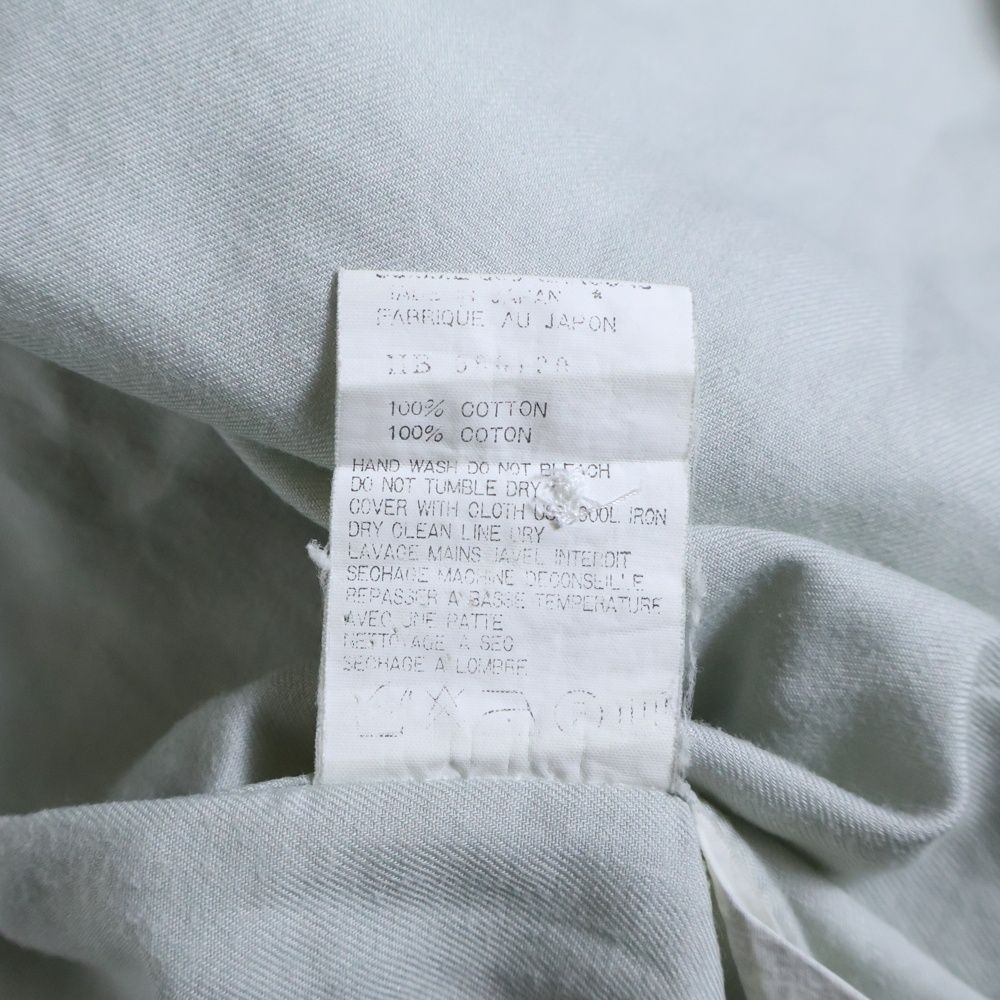 MADE IN JAPAN *
FABRIQUE AU JAPON
HB
100% COTTON
100% COTON
HAND WASH DO NOT BLEACH
DO NOT TUMBLE DRY
COVER WITH CLOTH COOL IRON
DRY CLEAN LINE DRY
LAVAGE MAINS JAVEL INTERDIT
SECHAGE MACHINE DECONSEILLE
REPASSER A BASSE TEMPERATURE
AVEC UNE PATTE
NETTOYAGE A SEC
SECHAGE A LOMBRE